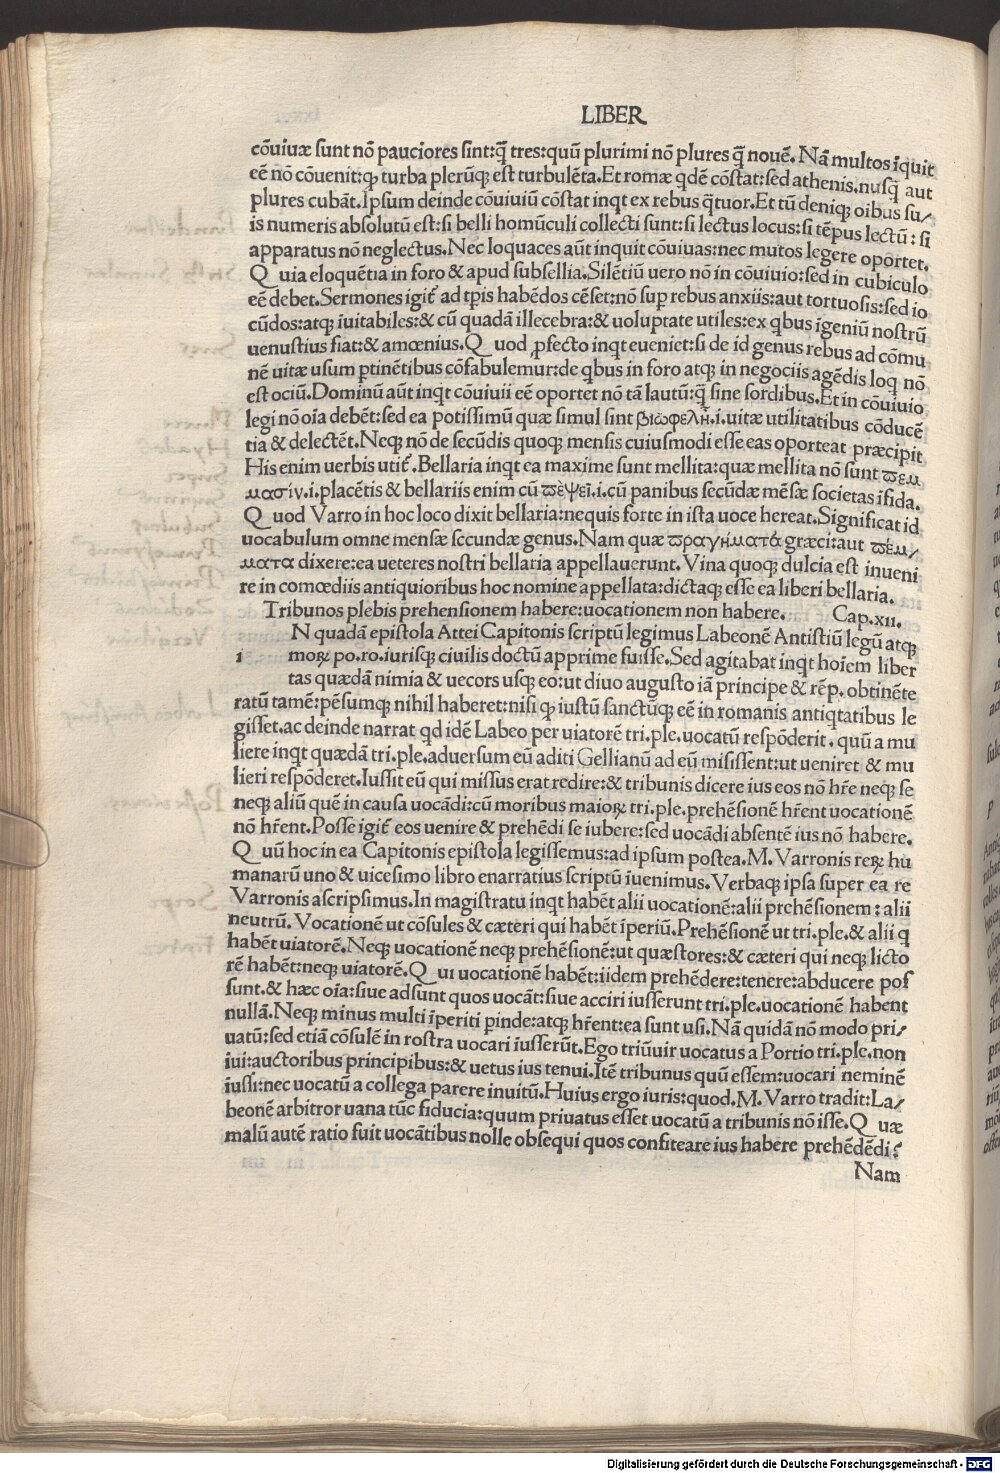 LIBER
cōuiuæ sunt nō pauciores sint:q̄ tres:quū plurimi nō plures q̄ nouē. Nā multos īquit
eē nō cōuenit:ꝙ turba plerūqꝫ est turbulēta.Et romæ qdē cōstat:sed athenis.nusq̄ aut
plures cubāt.Ipsum deinde cōuiuiū cōstat inqt ex rebus q̄tuor.Et tū deniqꝫ oibus su/
is numeris absolutū est:si belli homūculi collecti sunt:si lectus locus:si tēpus lectū: si
apparatus nō neglectus.Nec loquaces aūt inquit cōuiuas:nec mutos legere oportet.
Q uia eloquētia in foro & apud subsellia.Silētiū uero nō in cōuiuio:sed in cubiculo
eē debet.Sermones igiť ad tꝑis habēdos cēset:nō suꝑ rebus anxiis:aut tortuosis:sed io
cūdos:atqꝫ īuitabiles:& cū quadā illecebra:& uoluptate utiles:ex qbus īgeniū nostrū
uenustius fiat:& amœnius.Q uod ꝓfecto inqt eueniet:si de id genus rebus ad cōmu
nē uitæ usum ꝑtinētibus cōfabulemur:de qbus in foro atqꝫ in negociis agēdis loq nō
est ociū.Dominū aūt inqt cōuiuii eē oportet nō tā lautū:q̄ sine sordibus.Et in cōuiuio
legi nō oīa debēt:sed ea potissimū quæ simul sint βιωφελῆ.i.uitæ utilitatibus cōducē
tia & delectēt.Neqꝫ nō de secūdis quoqꝫ mensis cuiusmodi esse eas oporteat præcipit
His enim uerbis utiť.Bellaria inqt ea maxime sunt mellita:quæ mellita nō sunt ϖεμ
μασίν.i.placētis & bellariis enim cū ϖέψεϊ.i.cū panibus secūdæ mēsæ societas īfida.
Q uod Varro in hoc loco dixit bellaria:nequis forte in ista uoce hereat.Significat id
uocabulum omne mensæ secundæ genus.Nam quæ ϖραγηματά græci:aut ϖέμ/
ματα dixere:ea ueteres nostri bellaria appellauerunt.Vina quoqꝫ dulcia est inueni
re in comœdiis antiquioribus hoc nomine appellata:dictaqꝫ esse ea liberi bellaria.
Tribunos plebis prehensionem habere:uocationem non habere. Cap.xii.
N quadā epistola Attei Capitonis scriptū legimus Labeonē Antistiū legū atqꝫ
i moꝝ po.ro.iurisqꝫ ciuilis doctū apprime fuisse.Sed agitabat inqt hoīem liber
tas quædā nimia & uecors usqꝫ eo:ut diuo augusto iā principe & rēp. obtinēte
ratū tamē:pēsumqꝫ nihil haberet:nisi ꝙ iustū sanctūqꝫ eē in romanis antiqtatibus le
gisset.ac deinde narrat qd idē Labeo per uiatorē tri.ple.uocatū respōderit. quū a mu
liere inqt quædā tri.ple.aduersum eū aditi Gellianū ad eū misissent:ut ueniret & mu
lieri respōderet.Iussit eū qui missus erat redire:& tribunis dicere ius eos nō hr̄e neqꝫ se
neqꝫ aliū quē in causa uocādi:cū moribus maioꝝ tri.ple.prehēsionē hr̄ent uocationē
nō hr̄ent.Posse igiť eos uenire & prehēdi se iubere:sed uocādi absentē ius nō habere.
Q uū hoc in ea Capitonis epistola legissemus:ad ipsum postea.M.Varronis reꝝ hu
manarū uno & uicesimo libro enarratius scriptū īuenimus.Verbaqꝫ ipsa super ea re
Varronis ascripsimus.In magistratu inqt habēt alii uocationē:alii prehēsionem: alii
neutrū.Vocationē ut cōsules & cæteri qui habēt īperiū.Prehēsionē ut tri.ple.& alii q
habēt uiatorē.Neqꝫ uocationē neqꝫ prehēsionē:ut quæstores:& cæteri qui neqꝫ licto
rē habēt:neqꝫ uiatorē.Q ui uocationē habēt:iidem prehēdere:tenere:abducere pos
sunt.& hæc oīa:siue adsunt quos uocāt:siue acciri iusserunt tri.ple.uocationē habent
nullā.Neqꝫ minus multi īperiti ꝑinde:atqꝫ hr̄ent:ea sunt usi.Nā quidā nō modo pri/
uatū:sed etiā cōsulē in rostra uocari iusserūt.Ego triūuir uocatus a Portio tri.ple.non
iui:auctoribus principibus:& uetus ius tenui.Itē tribunus quū essem:uocari neminē
iussi:nec uocatū a collega parere inuitū.Huius ergo iuris:quod.M.Varro tradit:La/
beonē arbitror uana tūc fiducia:quum priuatus esset uocatū a tribunis nō isse.Q uæ
malū autē ratio fuit uocātibus nolle obsequi quos confiteare ius habere prehēdēdi?
Nam
Digitalisierung gefördert durch die Deutsche Forschungsgemeinschaft - DFG